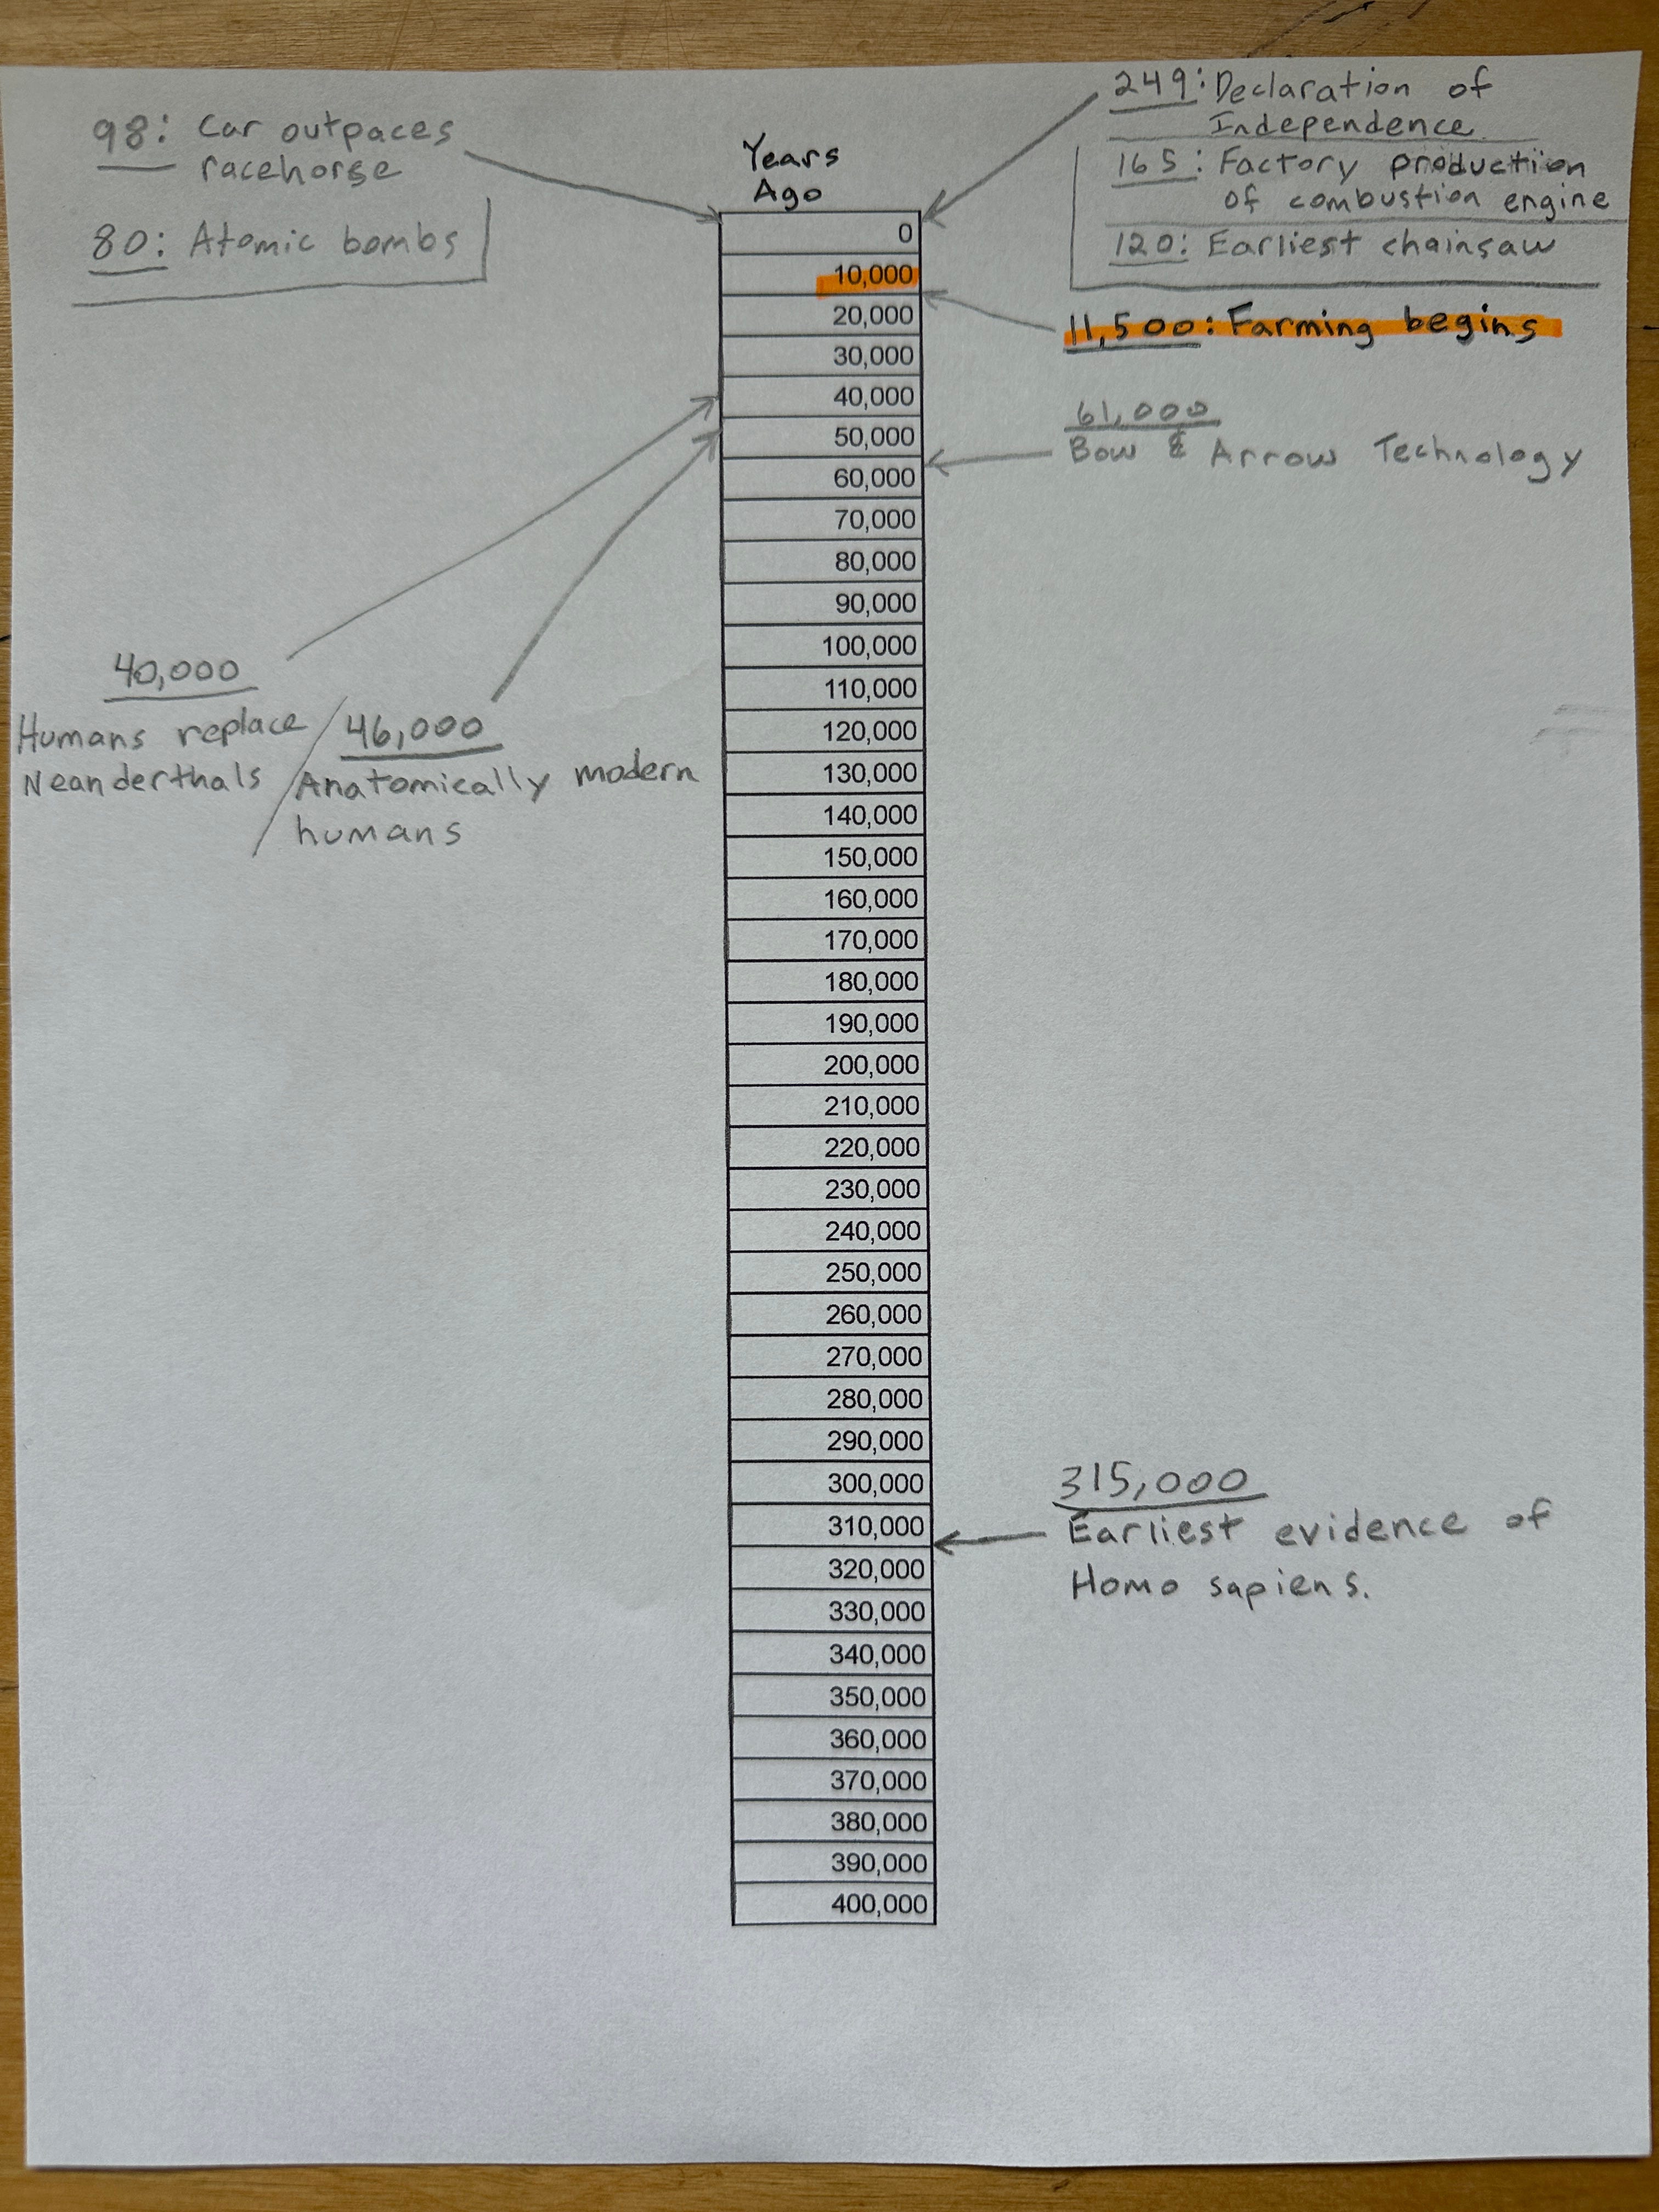 98: Car outpaces
racehorse
80: Atomic bombs
Years
Ago
249: Declaration of
Independence
165: Factory production
of combustion engine
120: Earliest chainsaw
11,500: Farming begins
61,000
Bow & Arrow Technology
40,000
Humans replace
Neanderthals
46,000
Anatomically modern
humans
0
10,000
20,000
30,000
40,000
50,000
60,000
70,000
80,000
90,000
100,000
110,000
120,000
130,000
140,000
150,000
160,000
170,000
180,000
190,000
200,000
210,000
220,000
230,000
240,000
250,000
260,000
270,000
280,000
290,000
300,000
310,000
320,000
330,000
340,000
350,000
360,000
370,000
380,000
390,000
400,000
315,000
Earliest evidence of
Homo sapiens.